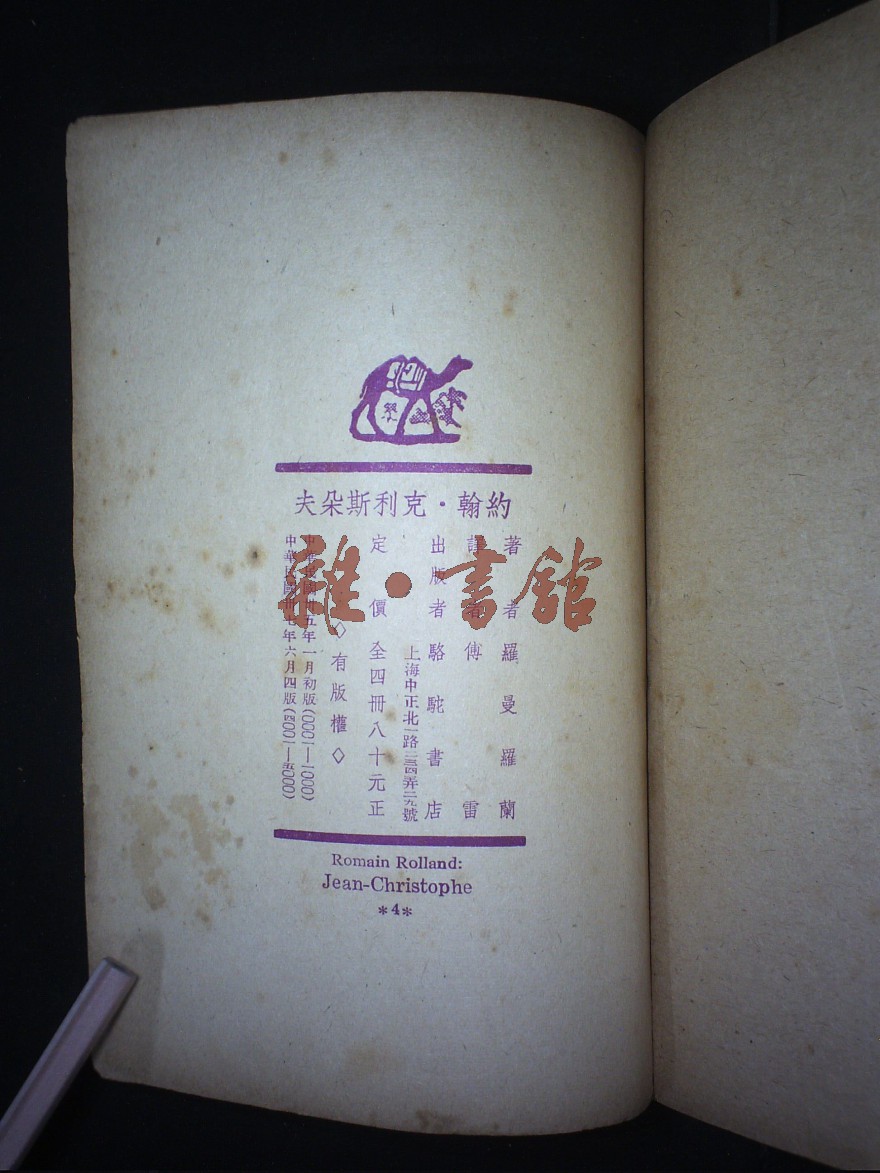 約翰・克利斯朵夫
著者 羅曼羅蘭
譯者 傅雷
出版者 駱駝書店
上海中正北一路二四弄二九號
定價 全四冊八十元正
◇有版權◇
中華民國卅五年一月初版(0001—1000)
中華民國卅七年六月四版(4001—5000)
Romain Rolland:
Jean-Christophe
*4*
雜・書館